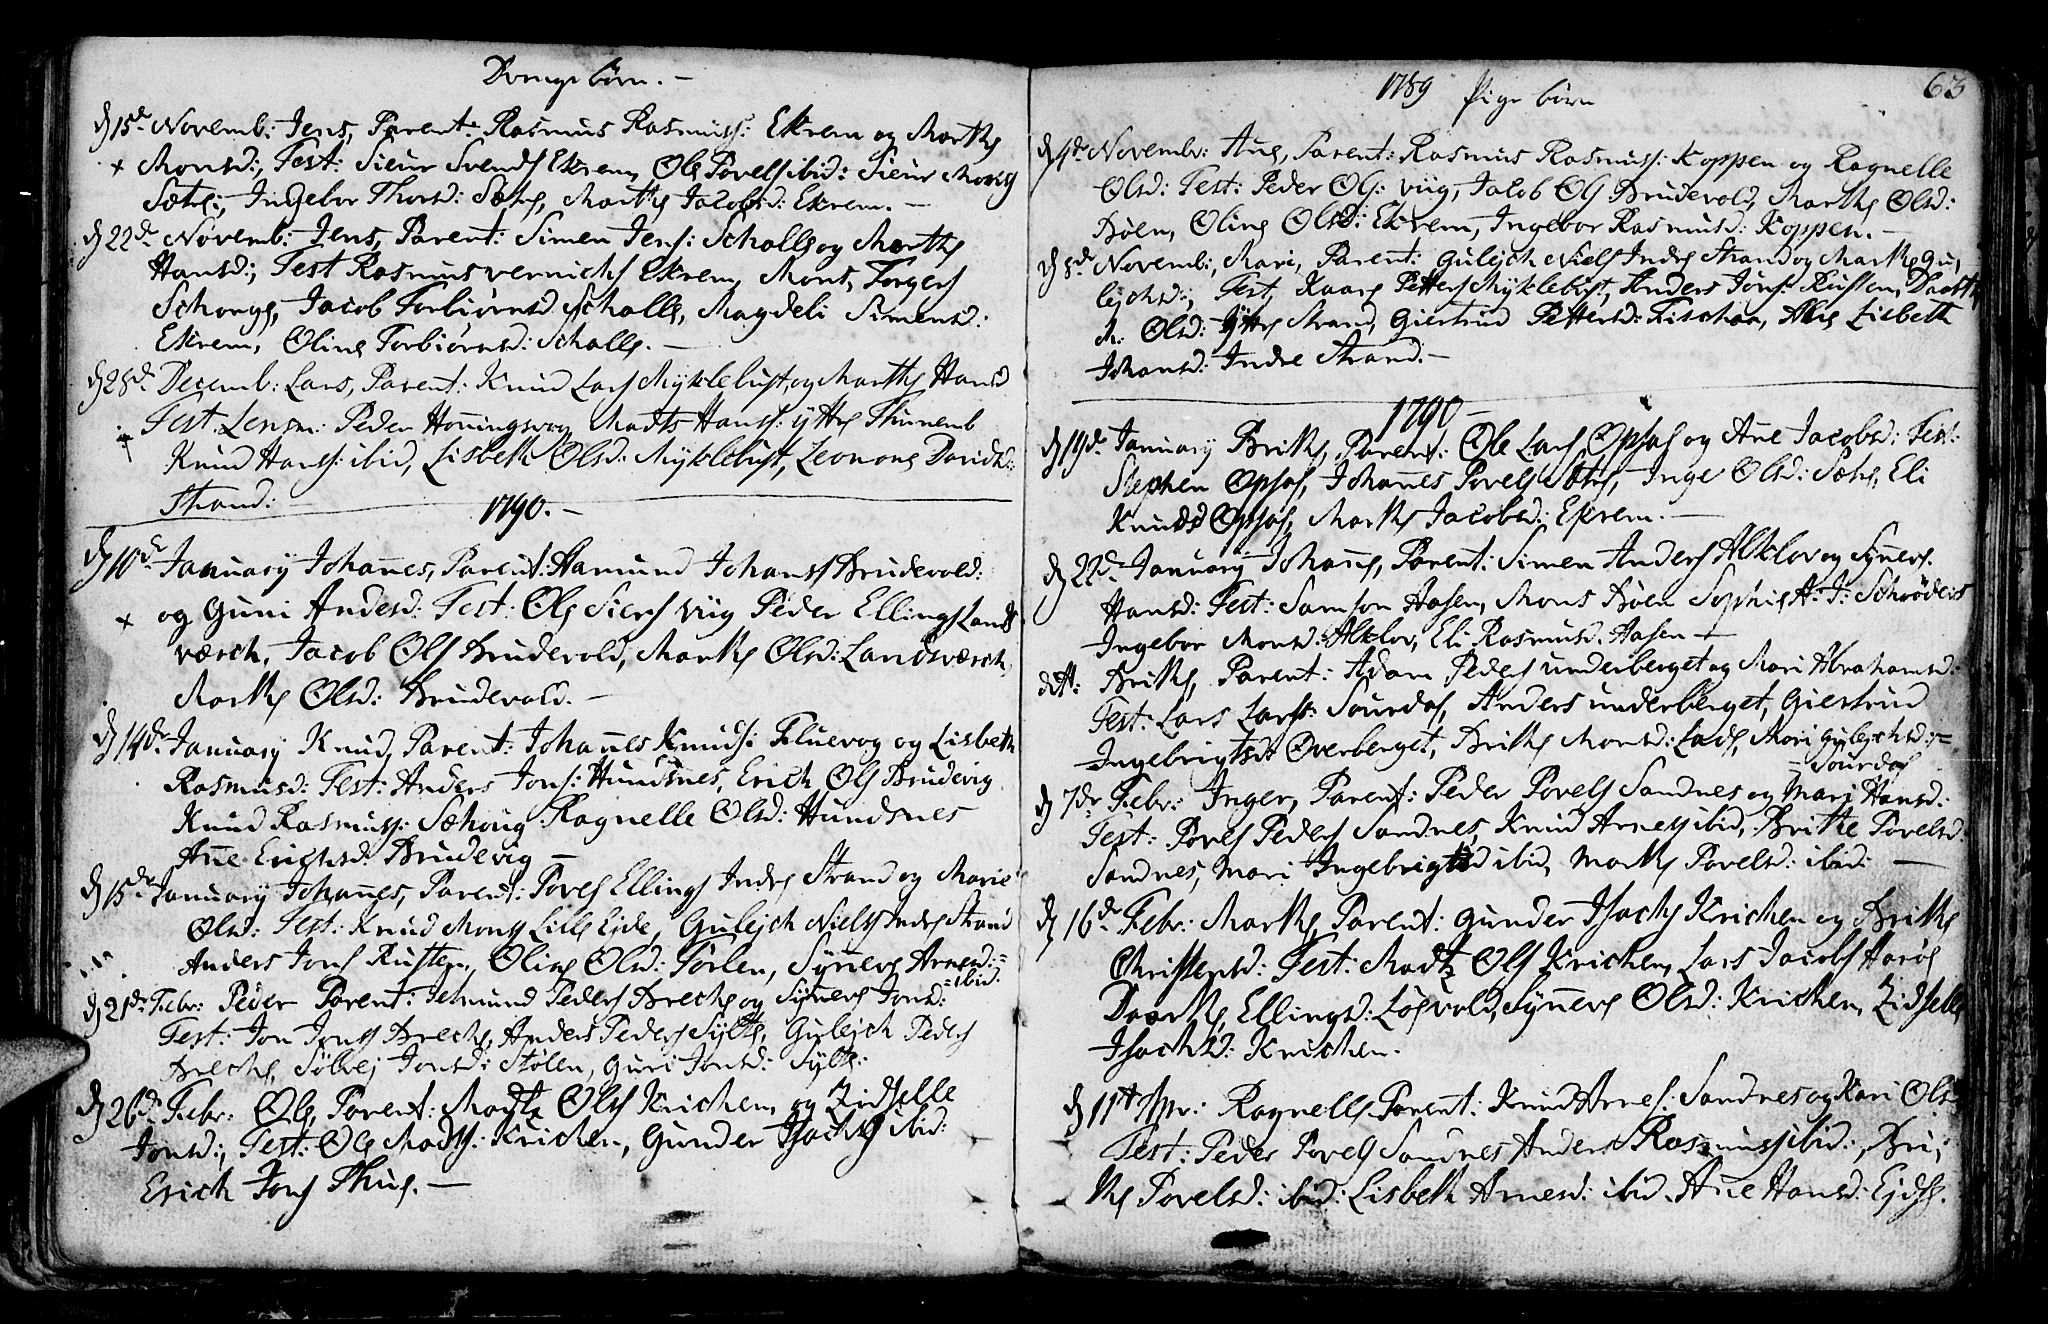 Drenge børn. -
d 15de Novemb: Jens, Parent: Rasmus Rasmuss: Ekrem og Marthe
+ Monsd:, Test: Sieur Svends Ekrem, Ole Povels ibid: Sieur Mons
Sætre, Ingebor Thorsd: Sætre, Marthe Jacobsd: Ekrem. -
d 22de Novemb: Jens, Parent: Simen Jens: Schalle og Marthe
Hansd:, Test Rasmus vernichs Ekrem, Mons Torgers
Schonge, Jacob Torbiørnsd Schalle, Magdeli Simensd:
Ekrem, Oline Torbiørnsd: Schalle. -
d 28de Decemb: Lars, Parent: Knud Lars Myklebust, og Marthe Hansd
Test: Lensm: Peder Honingsvog Madts Hanss: ytre Thinemb
Knud Hanss: ibid, Lisbeth Olsd: Myklebust, Leonone Davidsd:
Strand: -
1790. -
d 10de January Johannes, Parent: Hamund Johans Brudevold:
+ og Guni Andersd: Test: Ole Siers Viig Peder Ellings Lands
værch, Jacob Ols Brudevold, Marthe Olsd: Landsværch,
Marthe Olsd: Brudevold. -
d 14de January Knud, Parent: Johannes Knuds: Fluevog og Lisbeth
Rasmusd: Test: Anders Jons: Hundsnes, Erich Ols Brudevig
Knud Rasmuss: Sæhoug Ragnelle Olsd: Hundsnes
Ane Erichsd: Brudevig -
d 15de January Johannes, Parent: Povel Ellings Indre Strand og Marie
Olsd: Test: Knud Mons Lille Eide, Gulejch Niels Indre Strand
Anders Jons Rusten, Oline Olsd: Forlen, Synneve Arnesd:=
=ibid:
d 21de Febr: Peder Parent: Jetmund Peders Breche og Synneve Jonsd:
Test: Jon Jons Breche, Anders Peders Sylte, Gulejch Peders
Breche, Sølvej Jonsd: Stølen, Guri Jonsd: Sylte:
d 26de Febr: Ole, Parent: Madtz Ols Krichen, og Zidselle
Jonsd:, Test: Ole Madts: Krichen, Gunder Isachs ibid:
Erich Jons Thue. -
1789 Pige børn 63
d 4de Novembr: Ane, Parent: Rasmus Rasmuss: Koppen og Ragnelle
Olsd: Test: Peder Ols: Viig, Jacob Ols Brudevold, Marthe Olsd:
Bøen, Oline Olsd: Ekrem, Ingebor Rasmusd: Koppen. -
d 8de Novemb:, Mari, Parent: Gulejch Niels Indre Strand og Marthe Gu,
lejchsd:, Test, Kaare Petters Myklebust, Anders Jons: Rusten, Daarthe
M: Olsd: Yttre Strand, Giertrud Pettersd: Fischaa, Ane Lisbeth
Johansd: Indre Strand. -
1790 -
d 19de January Brithe, Parent: Ole Lars Opsal og Ane Jacobsd: Test:
Stephen Opsal, Johannes Povels Sætre, Inge Olsd: Sætre, Eli
Knudsd Opsal, Marthe Jacobsd: Ekrem. -
d 22de January Johane, Parent: Simen Anders Alklov og Syners.
Hansd: Test: Samson Aasen, Mons Bøen Sophie A: J: Schrøders
Ingebor Monsd: Alklov, Eli Rasmusd. Aasen -
dtt: Brithe, Parent: Adam Peders underberget og Mari Abrahamsd:
Test: Lars Larss: Sourdal, Anders underberget, Giertrud
Ingebrigtsdt Overberget, Brithe Monsd: Lade, Mari Gulejchsd:=
=Sourdal
d 7de Febr: Inger, Parent: Peder Povels Sandnes og Mari Hansd:
Test: Povel Peders Sandnes, Knud Arness ibid, Brithe Povelsd:
Sandnes, Mari Ingebrigtsd ibid, Marthe Povelsd: ibid: -
d 16de Febr: Marthe, Parent: Gunder Isachs Krichen og Brithe
Christensd: Test: Madtz Ols Krichen, Lars Jacobs Harøe
Daarthe Ellingsd: Løsvold, Synneve Olsd: Krichen, Zidselle
Isachsd: Krichen.
d 11te Apr: Ragnelle, Parent: Knud Arnes: Sandnes og Kari Olsd
Test: Peder Povels Sandnes Anders Rasmuss ibid:, Bri,
the Povelsd: ibid: Lisbeth Arnesd: ibid, Ane Hansd: Ejde.